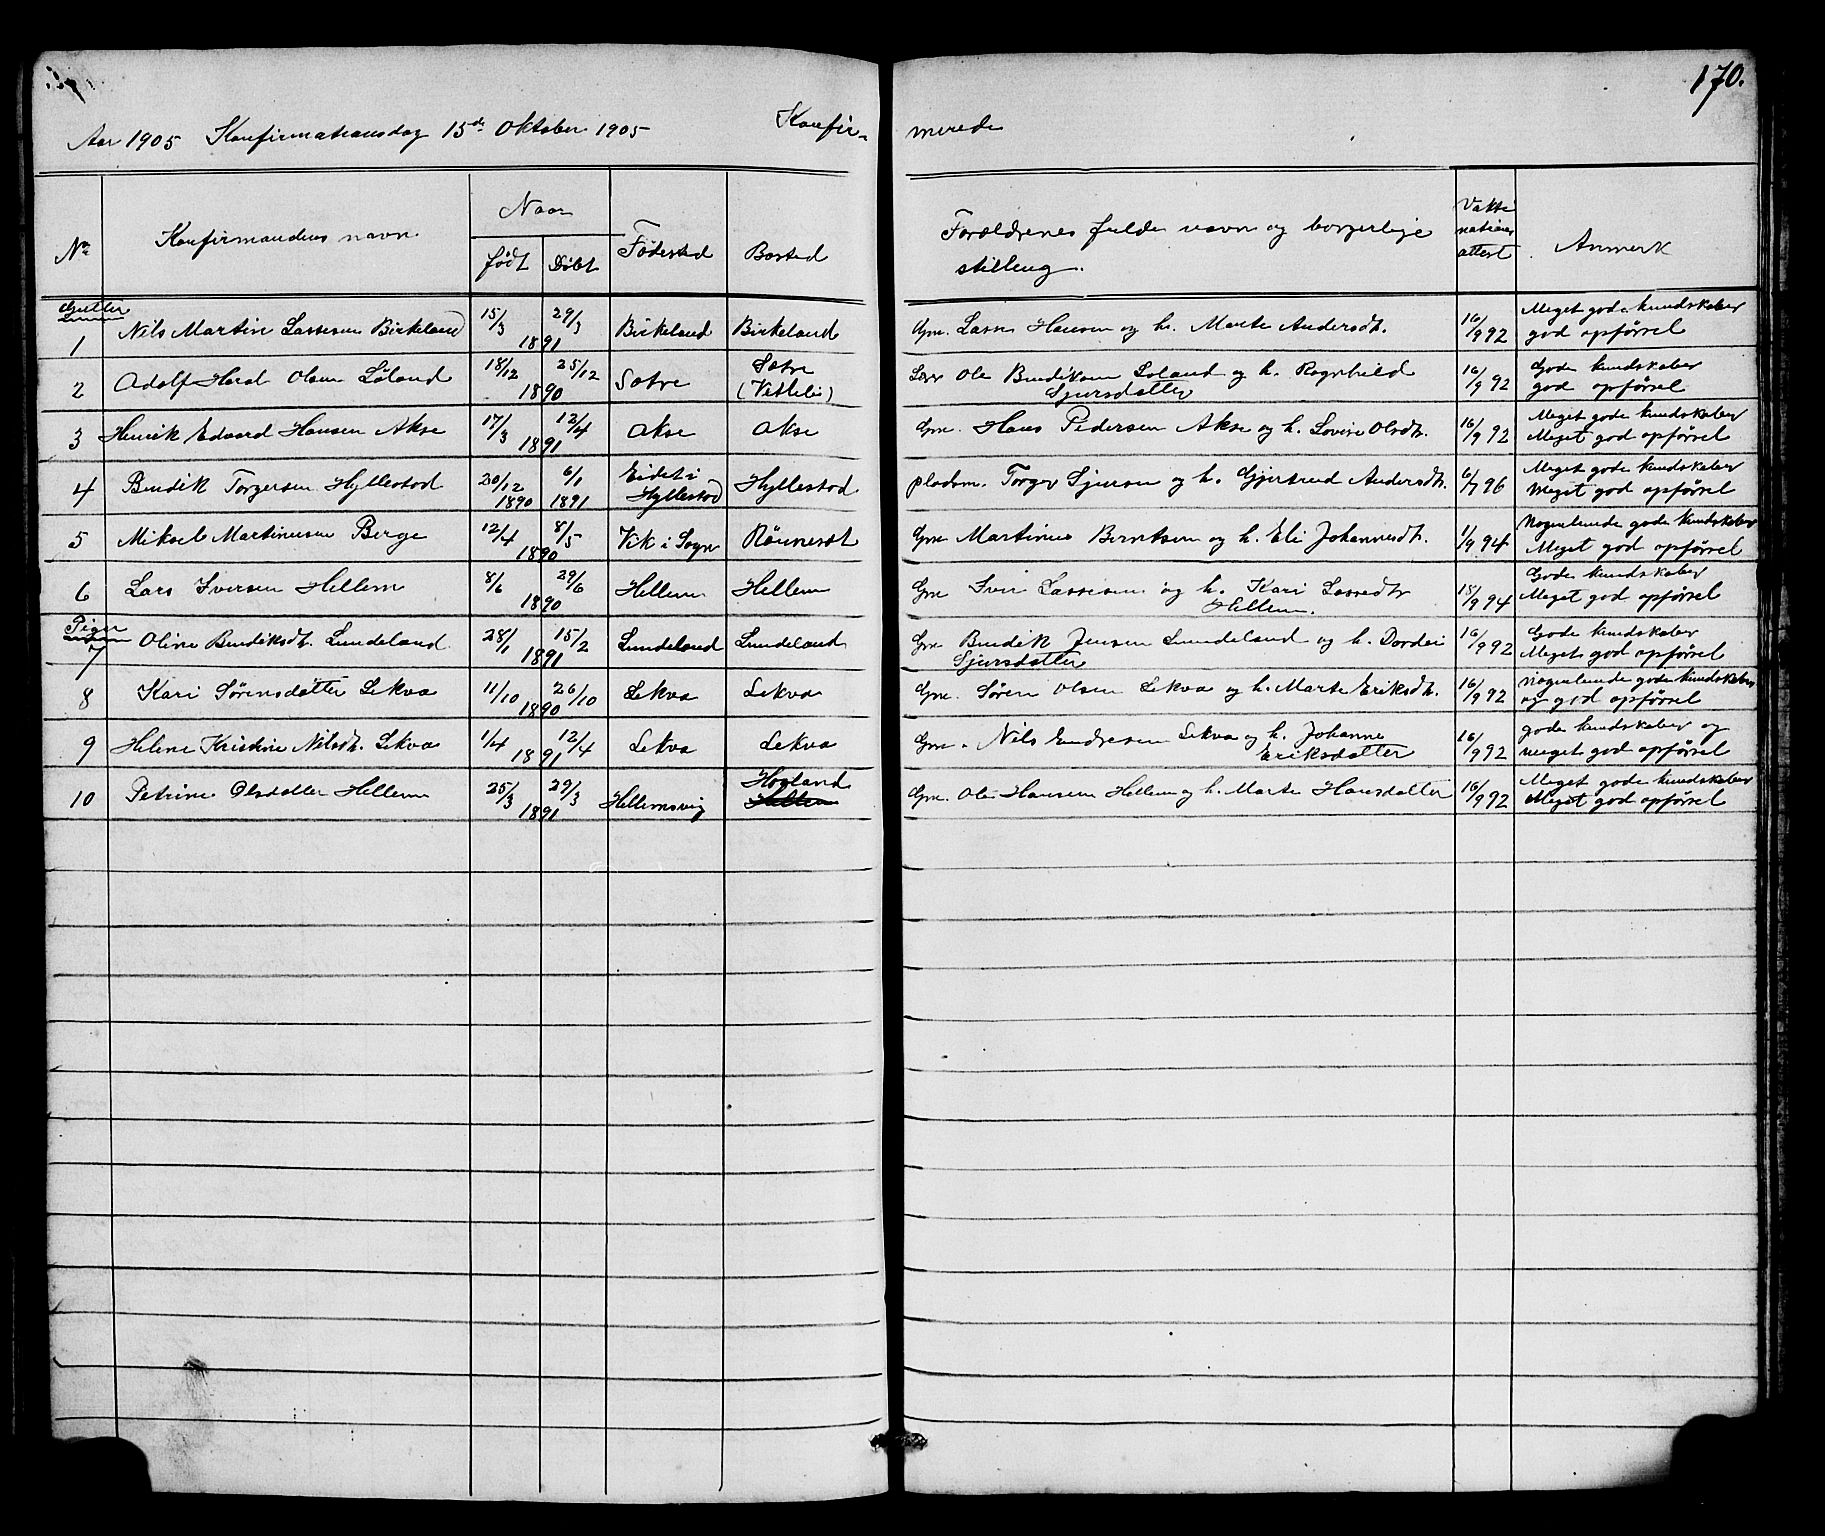 170.
Aar 1905 Konfirmationsdag 15de Oktober 1905 Konfir- merede
No Konfirmandens navn Naar Fødested Bosted Forældrenes fulde navn og borgerlige stilling. Vaksinations attest Anmerk
født Døbt
Gutter
1 Nils Martin Lassesen Birkeland 15/3 1891 29/3 Birkeland Birkeland Gm. Lasse Hansen og h. Marte Andersdt. 16/9 92 Meget gode kundskaber god opførsel
2 Adolf Olsen Løland 18/12 1890 25/12 Sætre Sætre (Vetlelii) Ole Bendiksen Løland og h. Ragnhild Sjursdatter 16/9 92 Gode kundskaber god opførsel
3 Henrik Edvard Hansen Akse 17/3 1891 12/4 Akse Akse Gm. Hans Pedersen Akse og h. Lovise Olsdt. 16/9 92 Meget gode kundskaber Meget god opførsel
4 Bendik Torgersen Hyllestad 20/12 1890 6/1 1891 Eidet i Hyllestad Hyllestad pladsm. Torger Sjursen og h. Gjertrud Andersdt. 6/7 96 Meget gode kundskaber Meget god opførsel
5 Mikael Martinusen Berge 12/4 1890 8/5 Vik i Sogn Rønneset Gm Martinus Berntsen og h. Eli Johannesdt. 1/9 94 Nogenlunde gode kundskaber Meget god opførsel
6 Lars Iversen Hellem 8/6 1890 29/6 Hellem Hellem Gm Iver Lassesen og h. Kari Lassedtr Hellem. 15/9 94 Gode kundskaber Meget god opførsel
Piger
7 Oline Bendiksdt. Lundeland 28/1 1891 15/2 Lundeland Lundeland Gm Bendik Jensen Lundeland og h. Dordei Sjursdatter 16/9 92 Gode kundskaber Meget god opførsel
8 Kari Sørensdatter Lekva 11/10 1890 26/10 Lekva Lekva Gm. Søren Olsen Lekva og h. Marte Eriksdt. 16/9 92 Nogenlunde gode kundskaber og god opførsel
9 Helene Kristine Nilsdt. Lekva 1/4 1891 12/4 Lekva Lekva Gm. Nils Endresen Lekva og h. Johanne Eriksdatter 16/9 92 gode kundskaber og meget god opførsel
10 Petrine Olsdatter Hellem 25/3 1891 29/3 Hellemsvig Hogland Hellem Gm. Ole Hansen Hellem og h. Marte Hansdatter 16/9 92 Meget gode kundskaber Meget god opførsel